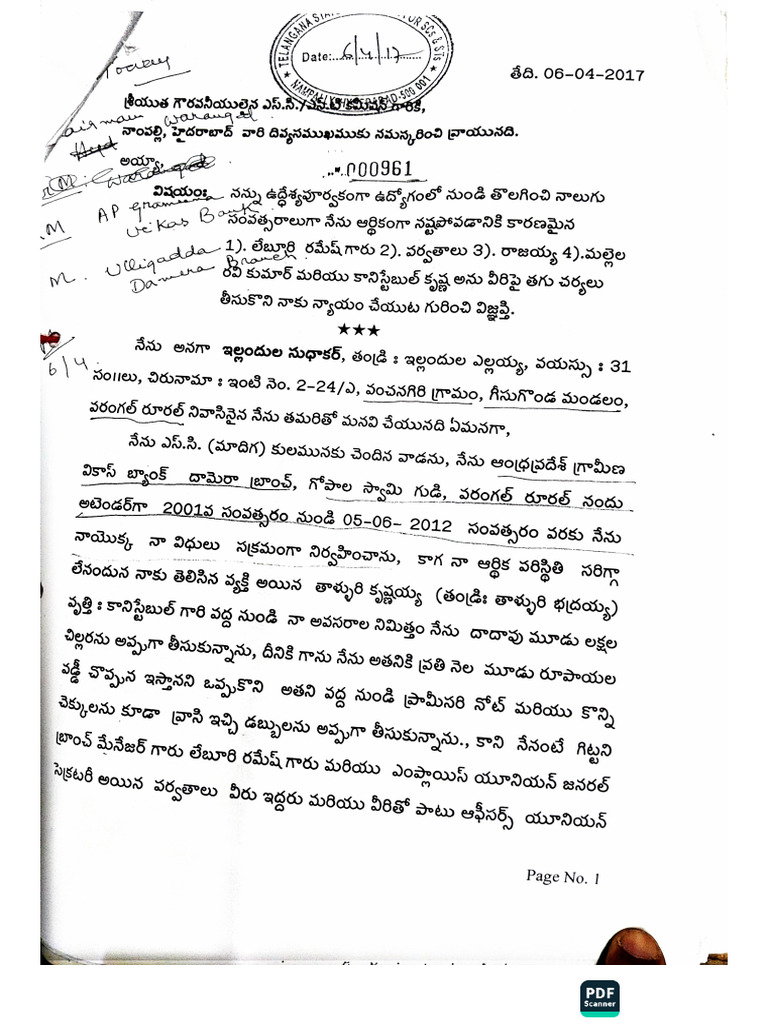 TELANGANA STATE FOR SCs & STs
Date: 6/4/17
NAMPALLY, HYDERABAD-500 001
తేది. 06-04-2017
Today
శ్రీయుత గౌరవనీయులైన ఎస్.సి./ఎస్.టి కమిషన్ గారికి,
నాంపల్లి, హైదరాబాద్ వారి దివ్యసముఖముకు నమస్కరించి వ్రాయునది.
అయ్యా,
000961
Warangal
AP Grameena
Vikas Bank
Ulligadda
Damera Branch
విషయం: నన్ను ఉద్ధేశ్యపూర్వకంగా ఉద్యోగంలో నుండి తొలగించి నాలుగు
సంవత్సరాలుగా నేను ఆర్థికంగా నష్టపోవడానికి కారణమైన
1). లేబూరి రమేష్ గారు 2). పర్వతాలు 3). రాజయ్య 4).మల్లెల
రవి కుమార్ మరియు కానిస్టేబుల్ కృష్ణ అను వీరిపై తగు చర్యలు
తీసుకొని నాకు న్యాయం చేయుట గురించి విజ్ఞప్తి.
★★★
6/4
నేను అనగా ఇల్లందుల సుధాకర్, తండ్రి : ఇల్లందుల ఎల్లయ్య, వయస్సు : 31
సం॥లు, చిరునామా : ఇంటి నెం. 2-24/ఎ, వంచనగిరి గ్రామం, గీసుగొండ మండలం,
వరంగల్ రూరల్ నివాసినైన నేను తమరితో మనవి చేయునది ఏమనగా,
నేను ఎస్.సి. (మాదిగ) కులమునకు చెందిన వాడను, నేను ఆంధ్రప్రదేశ్ గ్రామీణ
వికాస్ బ్యాంక్ దామెరా బ్రాంచ్, గోపాల స్వామి గుడి, వరంగల్ రూరల్ నందు
అటెండర్‌గా 2001వ సంవత్సరం నుండి 05-06- 2012 సంవత్సరం వరకు నేను
నాయొక్క నా విధులు సక్రమంగా నిర్వహించాను, కాగ నా ఆర్థిక పరిస్థితి సరిగ్గా
లేనందున నాకు తెలిసిన వ్యక్తి అయిన తాళ్ళురి కృష్ణయ్య (తండ్రి: తాళ్ళురి భద్రయ్య)
వృత్తి : కానిస్టేబుల్ గారి వద్ద నుండి నా అవసరాల నిమిత్తం నేను దాదాపు మూడు లక్షల
చిల్లరను అప్పుగా తీసుకున్నాను, దీనికి గాను నేను అతనికి ప్రతి నెల మూడు రూపాయల
వడ్డీ చొప్పున ఇస్తానని ఒప్పుకొని అతని వద్ద నుండి ప్రామీసరి నోట్ మరియు కొన్ని
చెక్కులను కూడా వ్రాసి ఇచ్చి డబ్బులను అప్పుగా తీసుకున్నాను., కాని నేనంటే గిట్టని
బ్రాంచ్ మేనేజర్ గారు లేబూరి రమేష్ గారు మరియు ఎంప్లాయిస్ యూనియన్ జనరల్
సెక్రటరీ అయిన పర్వతాలు వీరు ఇద్దరు మరియు వీరితో పాటు ఆఫీసర్స్ యూనియన్
Page No. 1
PDF
Scanner